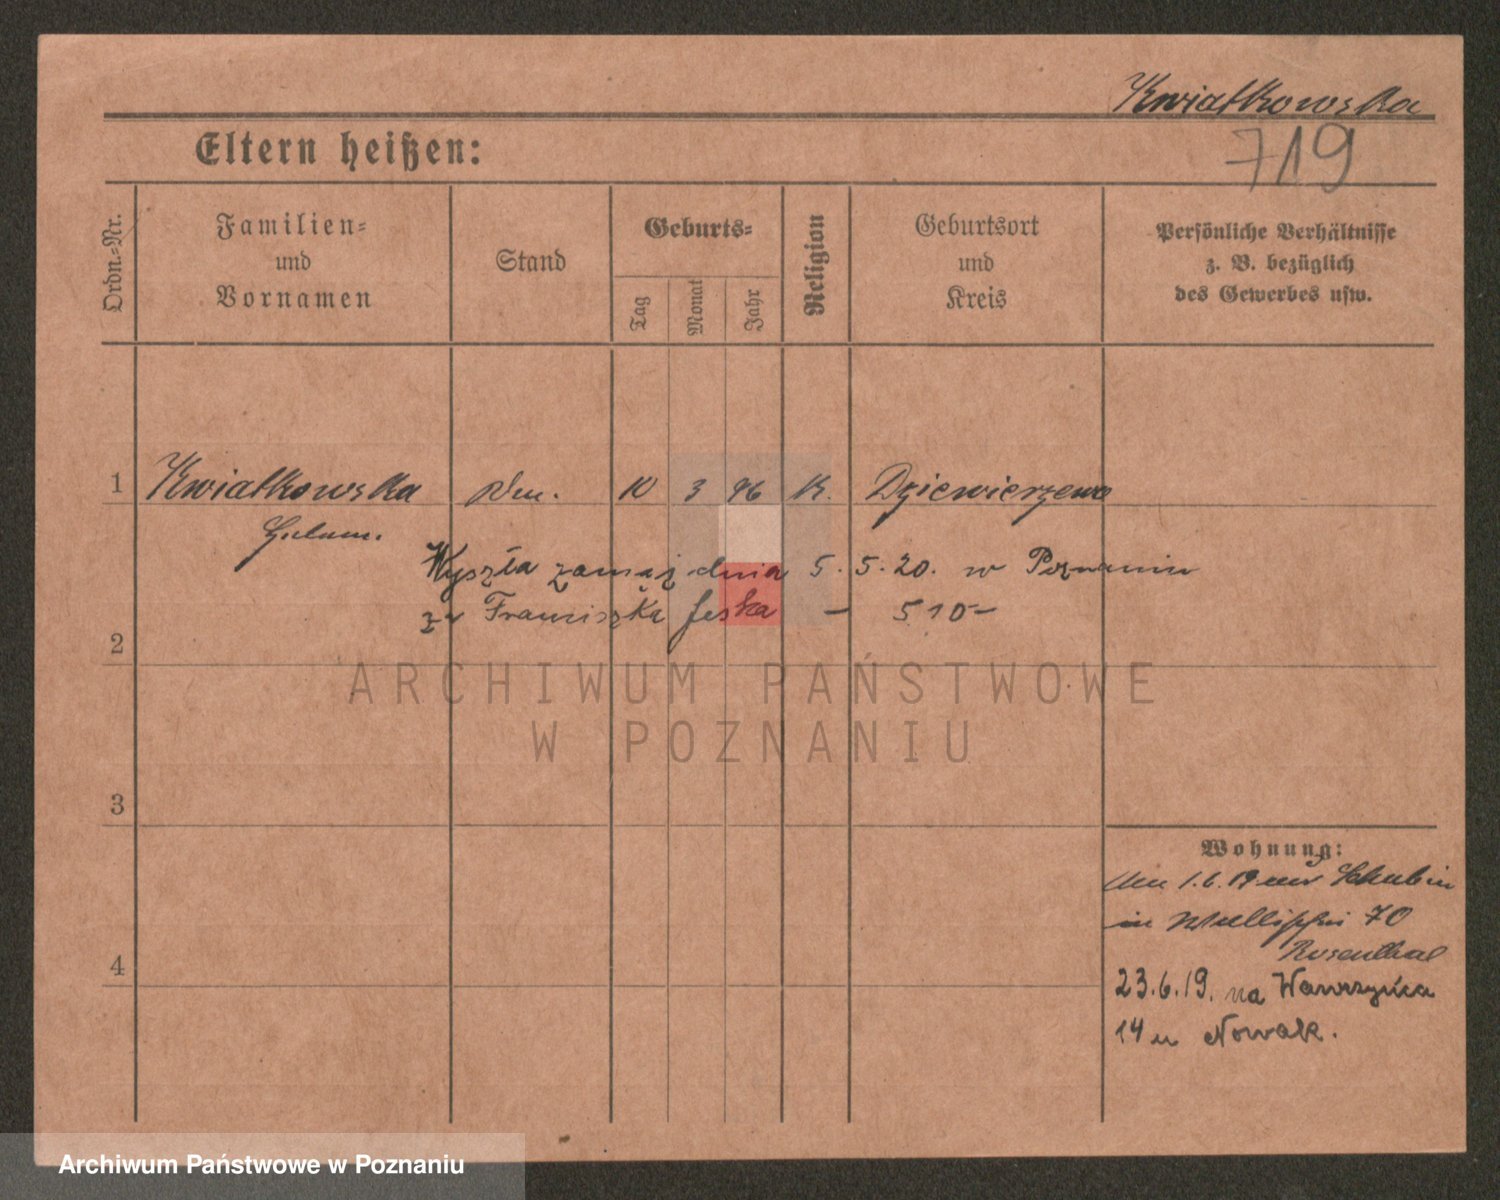 Kwiatkowska
719
Eltern heißen:
Ordn.-Nr.
Familien-
und
Vornamen
Stand
Geburts-
Tag
Monat
Jahr
Religion
Geburtsort
und
Kreis
Persönliche Verhältnisse
z. B. bezüglich
des Gewerbes usw.
1 Kwiatkowska 10 3 96 K. Dziewierzewo
Wyszła zamąż dnia 5. 5. 20. w Poznaniu
za Franciszka Jeska – 510–
2
ARCHIWUM PAŃSTWOWE
W POZNANIU
3
Wohnung:
1.6.19 aus Schubin
in Wallischei 70
Rosenthal
4
23.6.19. na Wawrzyńca
14 u Nowak.
Archiwum Państwowe w Poznaniu